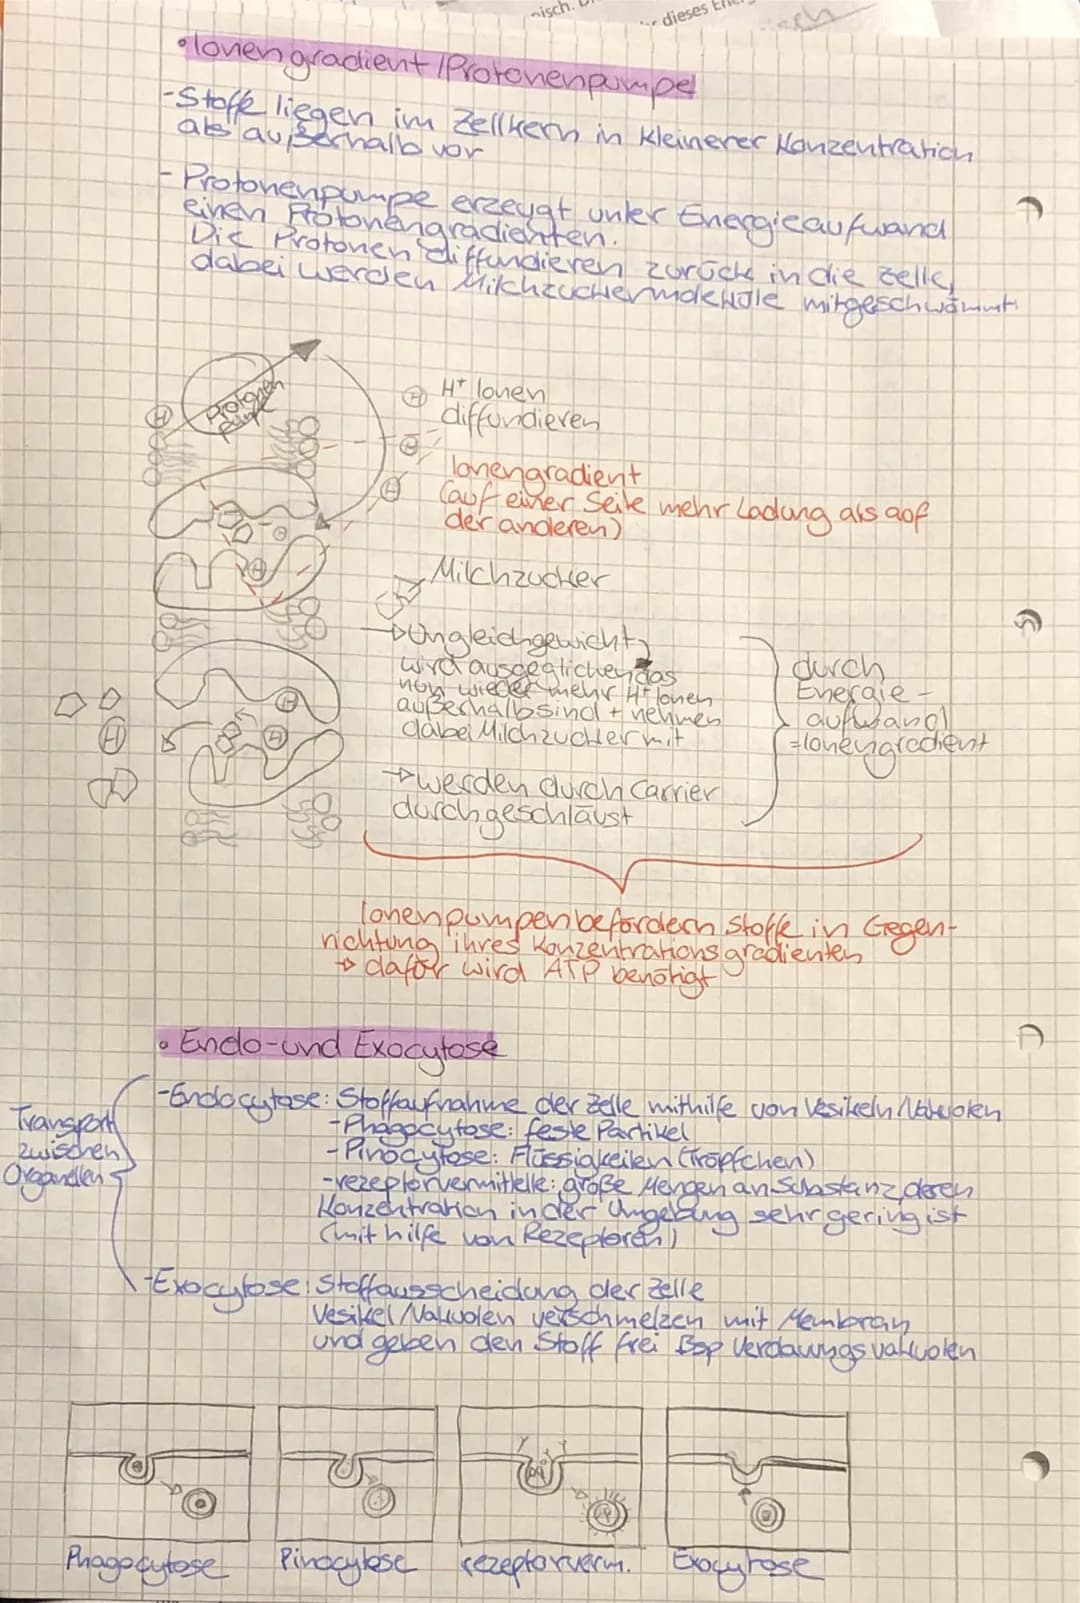 dieses
• Ionengradient / Protonenpumpe
- Stoffe liegen im Zellkern in kleinerer Konzentration
als außerhalb vor
- Protonenpumpe erzeugt unter Energieaufwand
einen Protonengradienten.
Die Protonen diffundieren zurück in die Zelle,
dabei werden Milchzuckermoleküle mitgeschwämmt.
Protonen
pumpe
H
H H+ Ionen
diffundieren
H
H
Ionengradient
(auf einer Seite mehr Ladung als auf
der anderen)
H
Milchzucker
→ Ungleichgewicht
wird ausgeglichen, das
nun wieder mehr H+ Ionen
außerhalb sind + nehmen
dabei Milchzucker mit
→ werden durch Carrier
durchgeschläust
durch
Energie-
aufwand
=Ionengradient
H
H
H
Ionenpumpen befördern Stoffe in Gegen-
richtung ihres Konzentrationsgradienten
→ dafür wird ATP benötigt
• Endo- und Exocytose
Transport
zwischen
Organellen
- Endocytose: Stoffaufnahme der Zelle mithilfe von Vesikeln/Vakuolen
- Phagocytose: feste Partikel
- Pinocytose: Flüssigkeiten (Tröpfchen)
- rezeptorvermittelte: große Mengen an Substanz, deren
Konzentration in der Umgebung sehr gering ist
(mit hilfe von Rezeptoren)
- Exocytose: Stoffausscheidung der Zelle
Vesikel/Vakuolen verschmelzen mit Membran
und geben den Stoff frei Bsp Verdauungsvakuolen
Phagocytose Pinocytose rezeptorverm. Exocytose